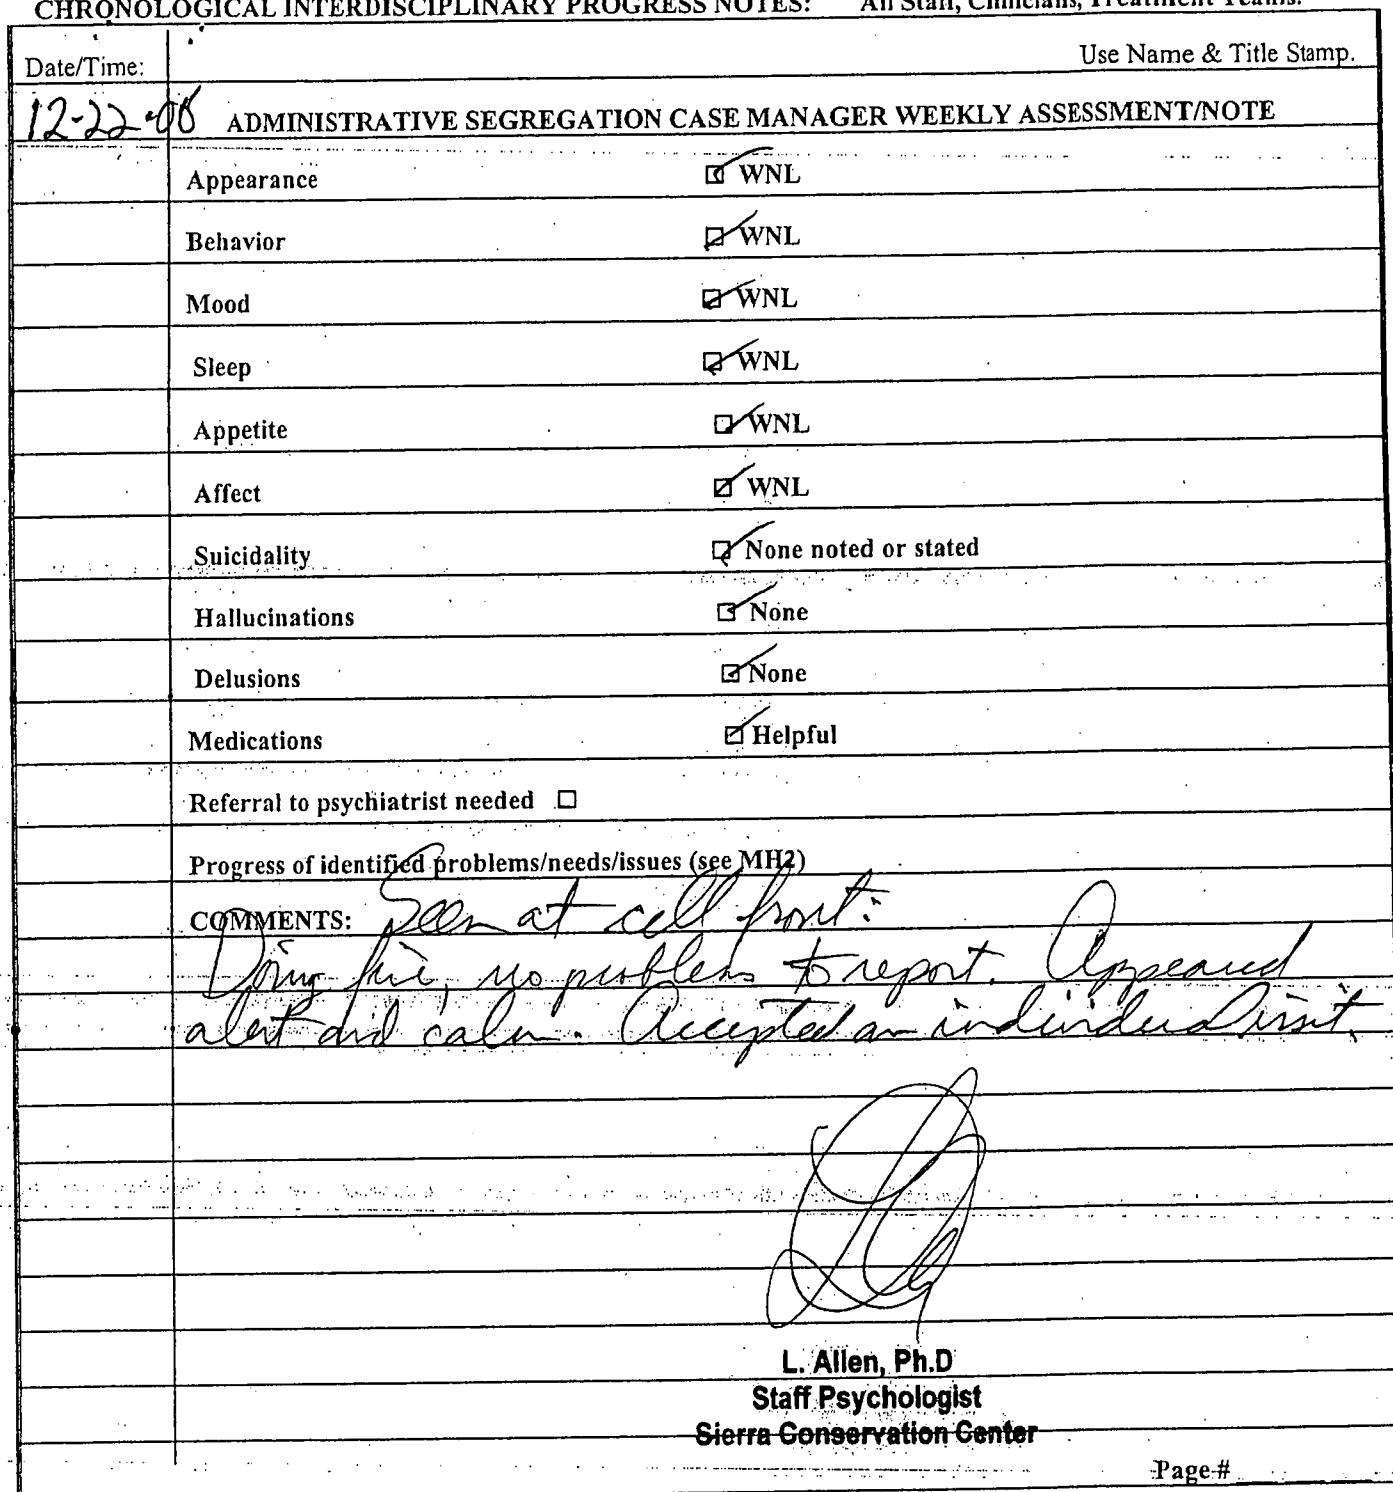 CHRONOLOGICAL INTERDISCIPLINARY PROGRESS NOTES: All Staff, Clinicians, Treatment Teams.
Date/Time: Use Name & Title Stamp.
12-22-08 ADMINISTRATIVE SEGREGATION CASE MANAGER WEEKLY ASSESSMENT/NOTE
Appearance ☑ WNL
Behavior ☑ WNL
Mood ☑ WNL
Sleep ☑ WNL
Appetite ☑ WNL
Affect ☑ WNL
Suicidality ☑ None noted or stated
Hallucinations ☑ None
Delusions ☑ None
Medications ☑ Helpful
Referral to psychiatrist needed ☐
Progress of identified problems/needs/issues (see MH2)
COMMENTS: Seen at cell front:
Doing fine, no problems to report. Appeared
alert and calm. Accepted an individual visit.
L. Allen, Ph.D
Staff Psychologist
Sierra Conservation Center
Page #